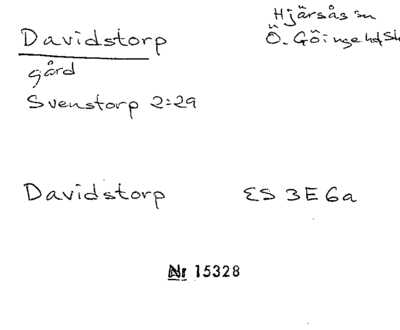 Davidstorp
Hjärsås sn
Ö. Göinge hd Sk
gård
Svenstorp 2:29
Davidstorp
ES 3E 6a
Nr 15328